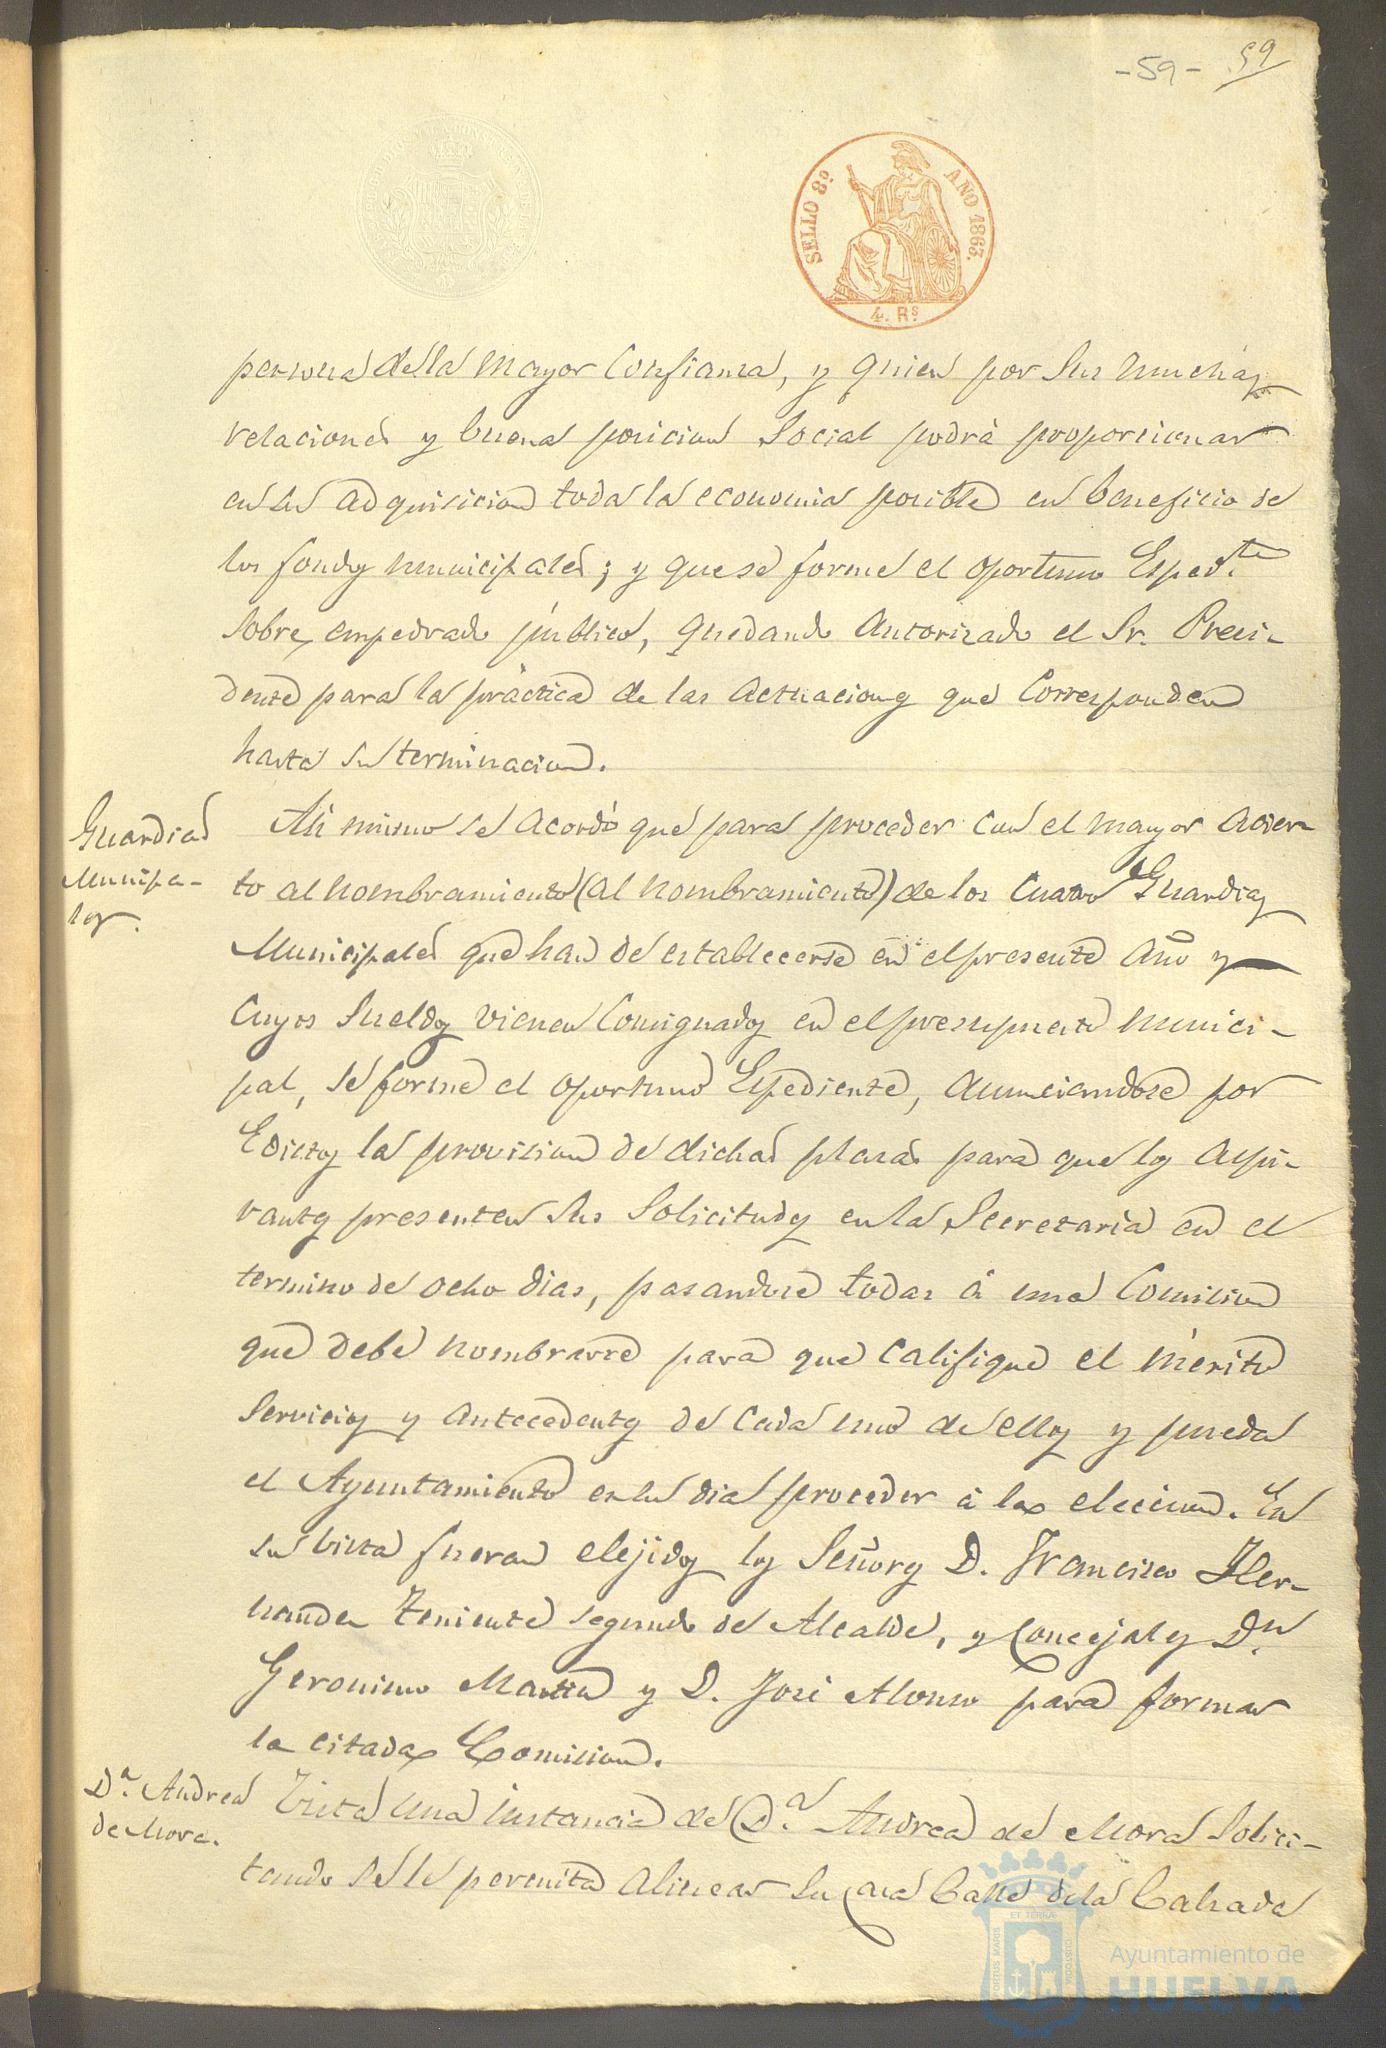 -59- 59
SELLO 8º AÑO 1863.
4. Rs
persona de la mayor Confianza, y quien por sus muchas
relaciones y buena posicion Social podrá proporcionar
en su adquisicion toda la economia posible en beneficio de
los fondos municipales; y que se forme el oportuno Esped.te
sobre empedrado público, quedando Autorizado el Sr. Presi-
dente para la práctica de las actuaciones que Corresponden
hasta su terminacion.
Guardias
Municipa-
les.
Asi mismo se acordó que para proceder con el mayor acier-
to al nombramiento (al nombramiento) de los Cuatro Guardias
Municipales que han de establecerse en el presente año y
Cuyos Sueldos vienen Consignados en el presupuesto munici-
pal, se forme el oportuno Espediente, anunciandose por
Edictos la provision de dichas plazas para que los aspi-
rantes presenten sus Solicitudes en la Secretaria en el
termino de ocho dias, pasandose todas á una Comision
que debe nombrarse para que califique el mérito
Servicios y antecedentes de cada uno de ellos y pueda
el Ayuntamiento en su dia proceder á la eleccion. En
su vista fueran elejidos los Señores D. Francisco Her-
nandez Teniente segundo de Alcalde, y Concejales Dn
Geronimo Martin y D. José Alonso para formar
la citada Comision.
Dª. Andrea
de Mora.
Vista una instancia de Dª. Andrea de Mora Solici-
tando se le permita alinear su casa Calle de la Calzada
PORTUS MARIS ET TERRÆ CUSTODIA
Ayuntamiento de
HUELVA